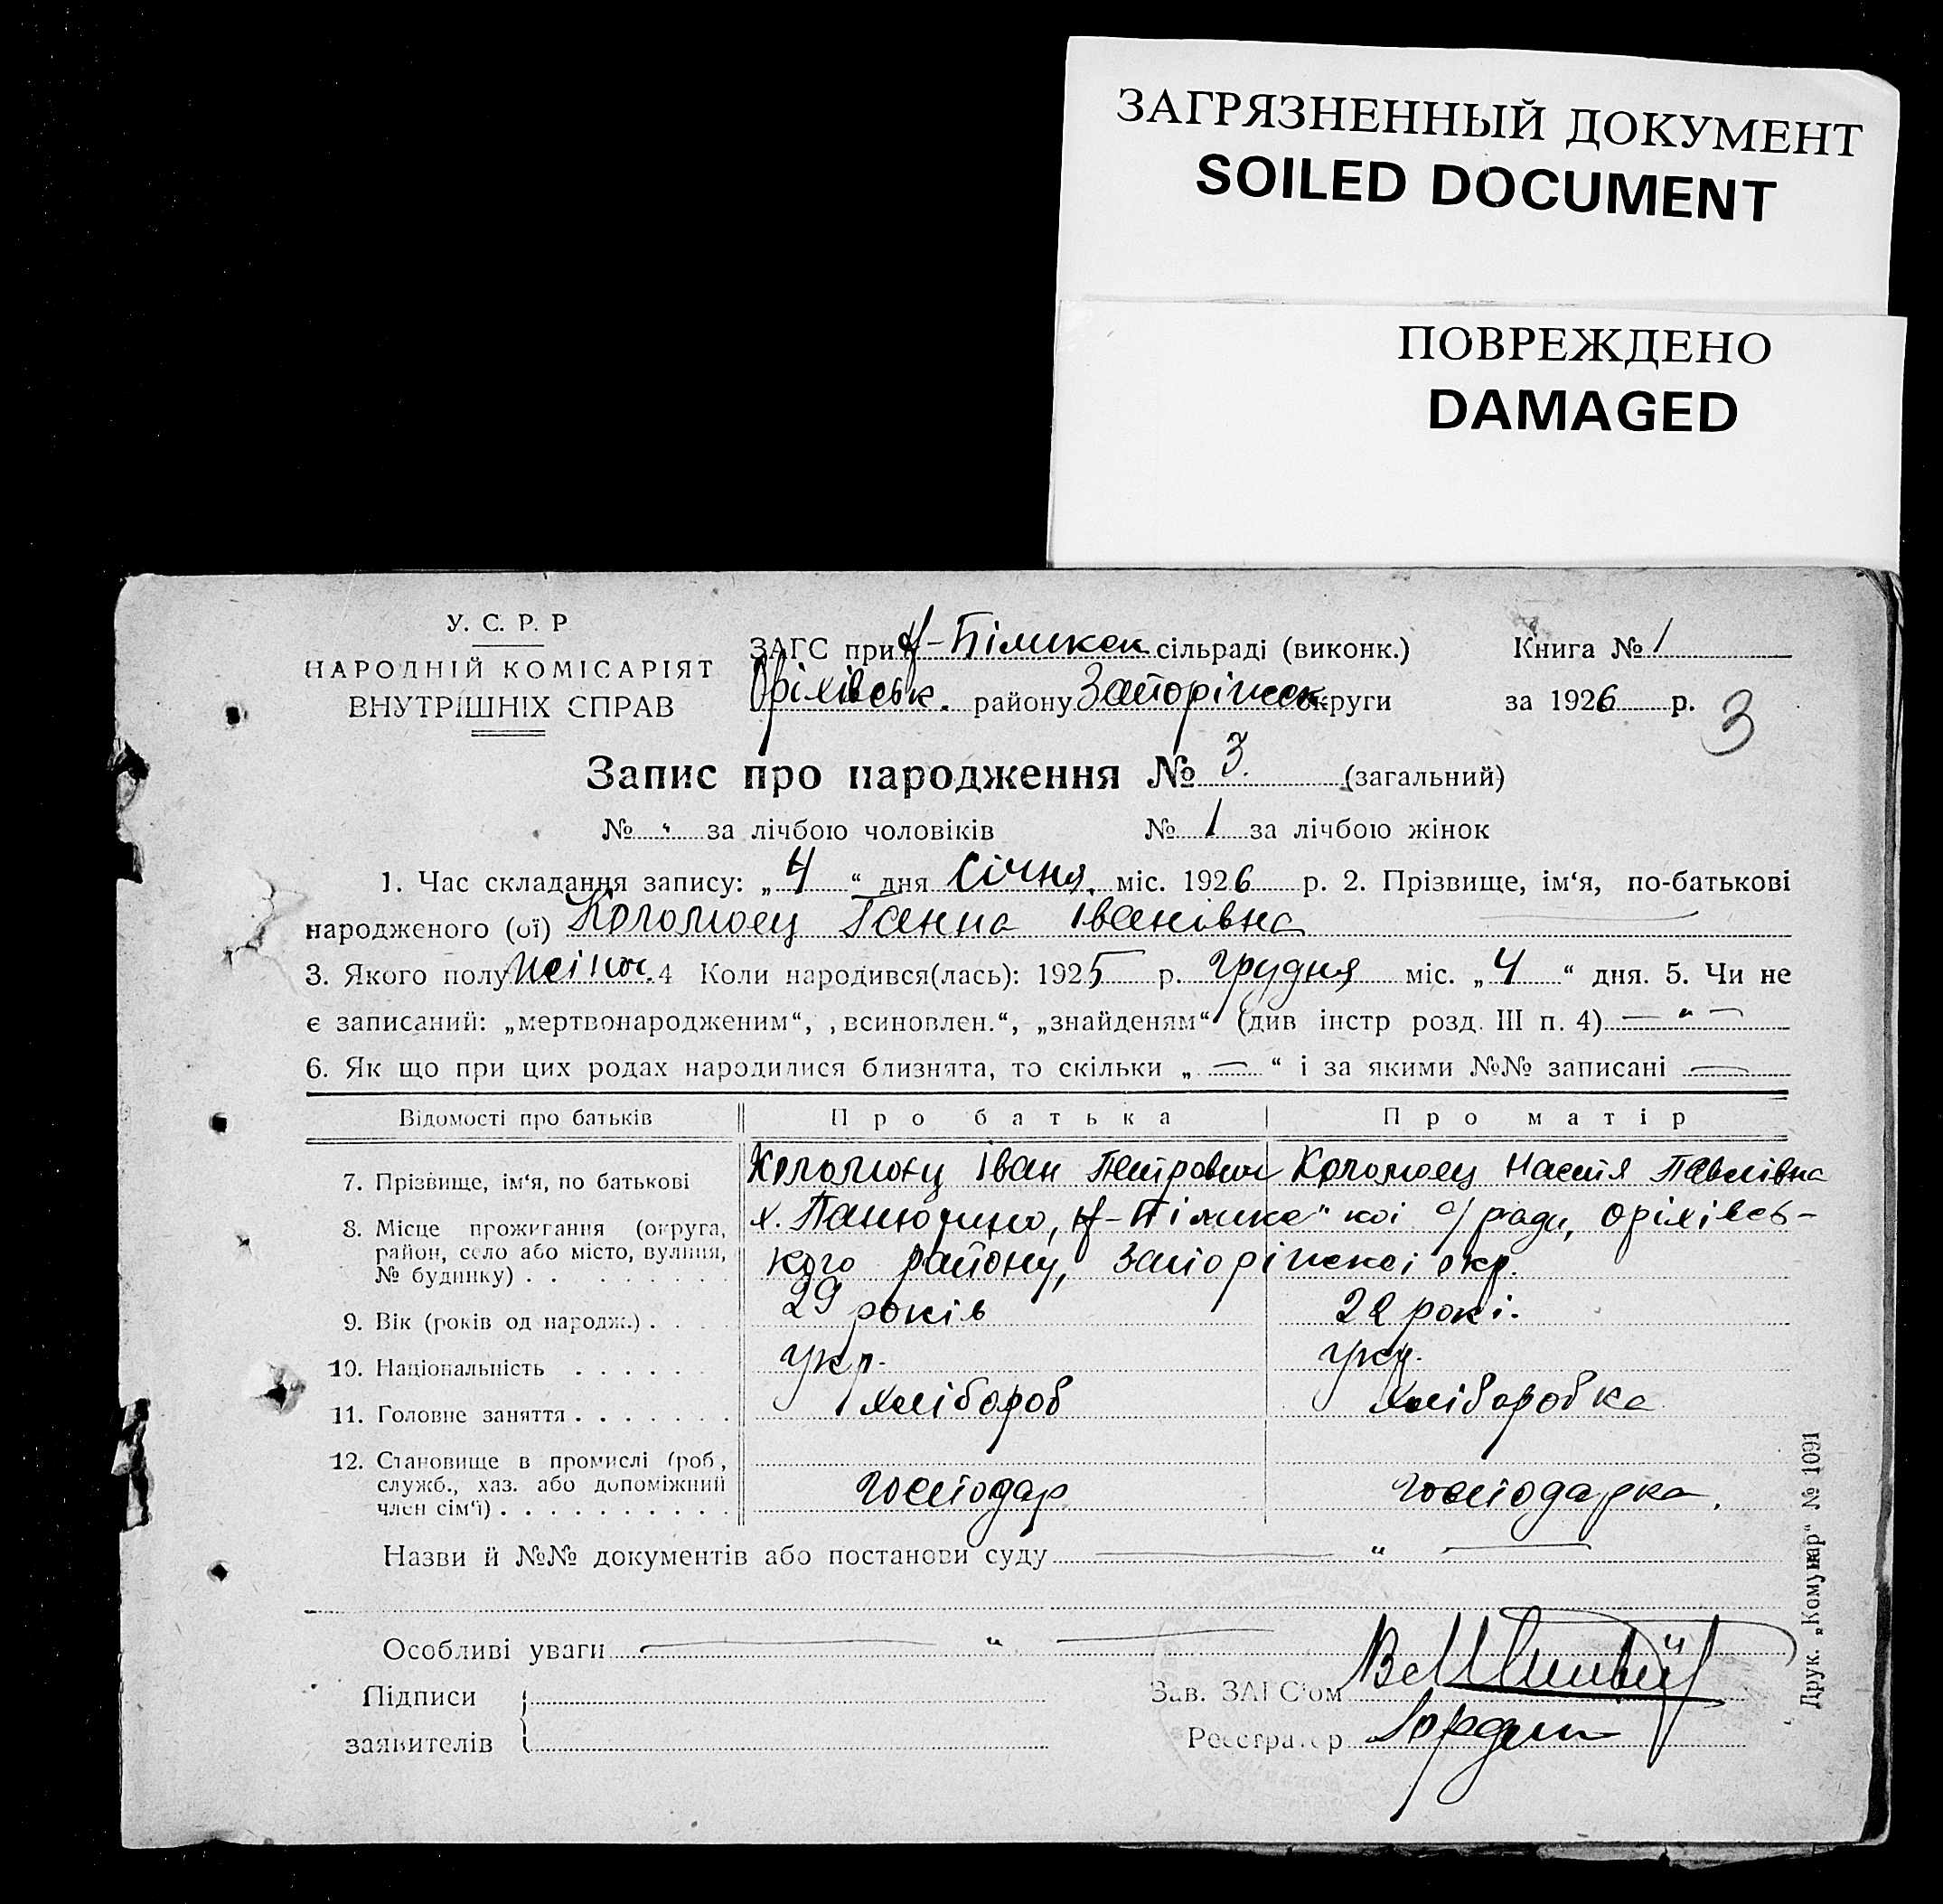 ЗАГРЯЗНЕННЫЙ ДОКУМЕНТ
SOILED DOCUMENT
ПОВРЕЖДЕНО
DAMAGED
У. С. Р. Р
НАРОДНІЙ КОМІСАРІЯТ
ВНУТРІШНІХ СПРАВ
ЗАГС при сільраді (виконк.) Книга № 1
Оріхівськ. району Запоріжськ. округи за 1926 р. 3
Запис про народження № 3. (загальний)
№ за лічбою чоловіків № 1 за лічбою жінок
1. Час складання запису: „4“ дня Січня міс. 1926 р. 2. Прізвище, ім‘я, по-батькові
народженого (ої) Коломоец Ганна Іванівна
3. Якого полу жіноч. 4 Коли народився(лась): 1925 р. грудня міс. „4“ дня. 5. Чи не
є записаний: „мертвонародженим“, ‚всиновлен.“, „знайденям“ (див інстр розд. III п. 4) — " —
6. Як що при цих родах народилися близнята, то скільки „ — “ і за якими №№ записані —
Відомості про батьків Про батька Про матір
7. Прізвище, ім‘я, по батькові Коломоец Іван Петрович Коломоец Настя Павлівна
8. Місце прожигання (округа, район, село або місто, вулиця, № будинку) х. с/ради, Оріхівсь-
кого району, Запоріжскоі окр.
9. Вік (років од народж.) 29 років роки.
10. Національність укр. укр.
11. Головне заняття хлібороб хліборобка
12. Становище в промислі (роб., служб., хаз. або допоміжний член сім‘ї) господар господарка.
Назви й №№ документів або постанови суду — " —
Особливі уваги — " —
Підписи
заявителів
Зав. ЗАГС‘ом
Реєстратор
Друк. „Комунар“ № 1091